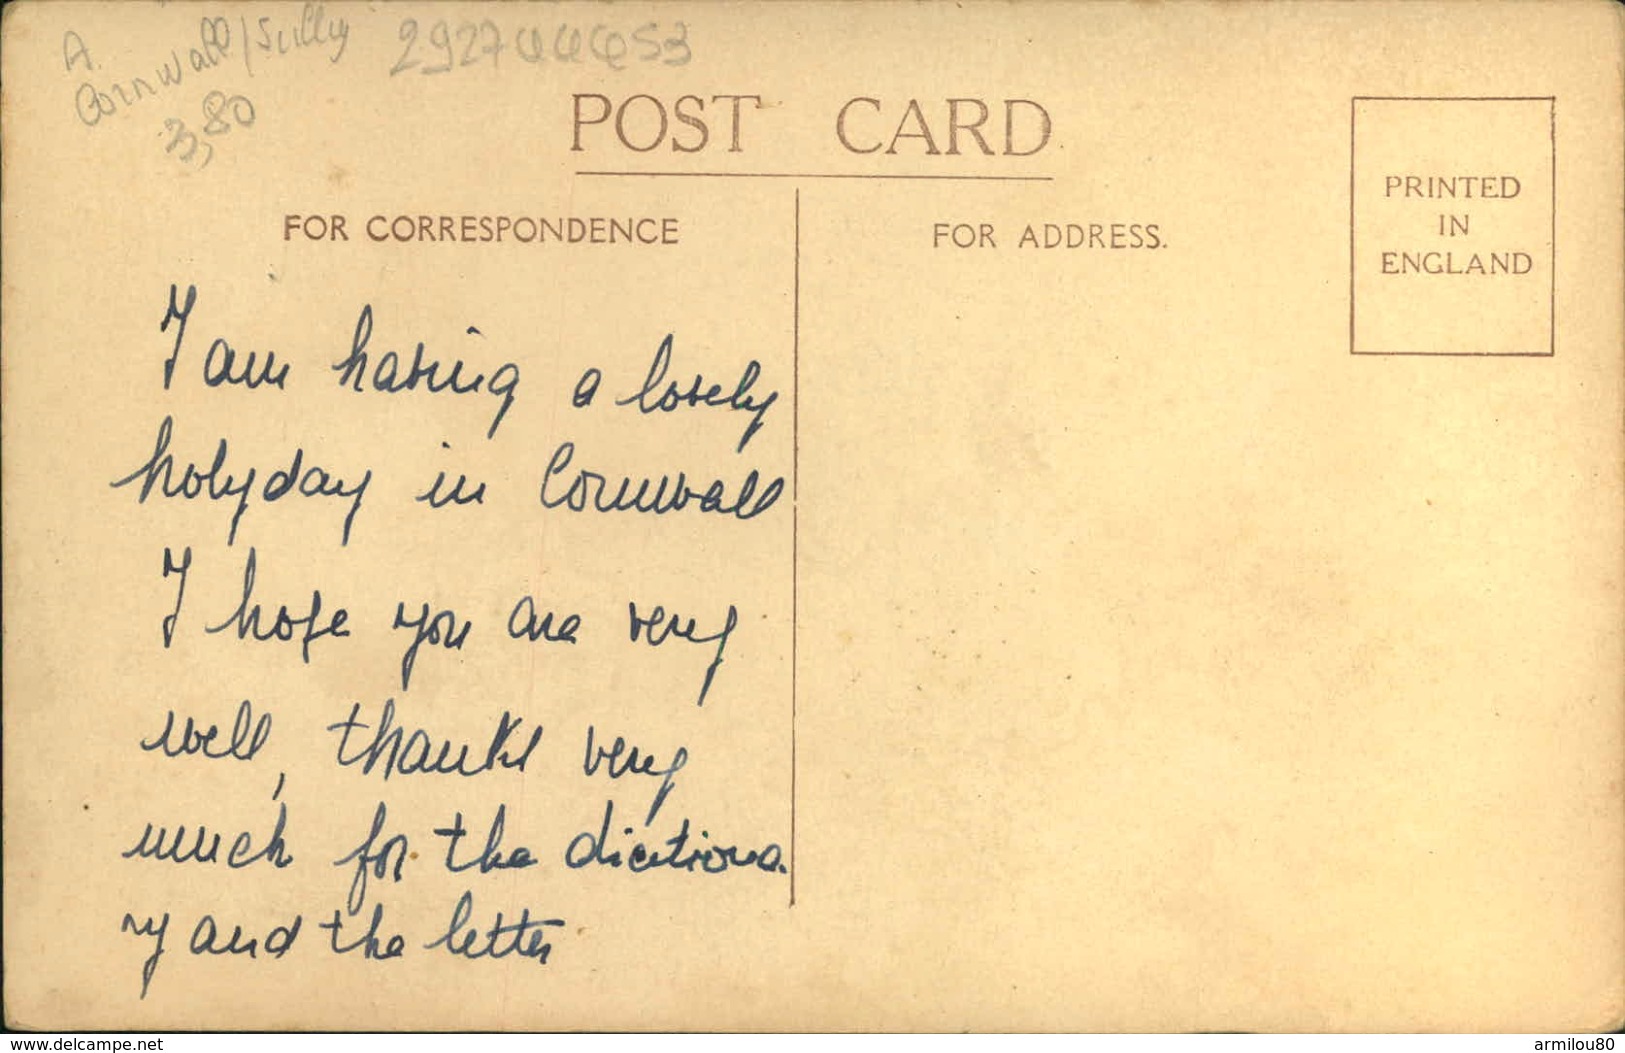 A.
Cornwall/Scilly
3,80
POST CARD
FOR CORRESPONDENCE
FOR ADDRESS.
PRINTED
IN
ENGLAND
I am having a lovely
holyday in Cornwall
I hope you are very
well, thanks very
much for the dictiona.
ry and the letter
www.delcampe.net
armilou80